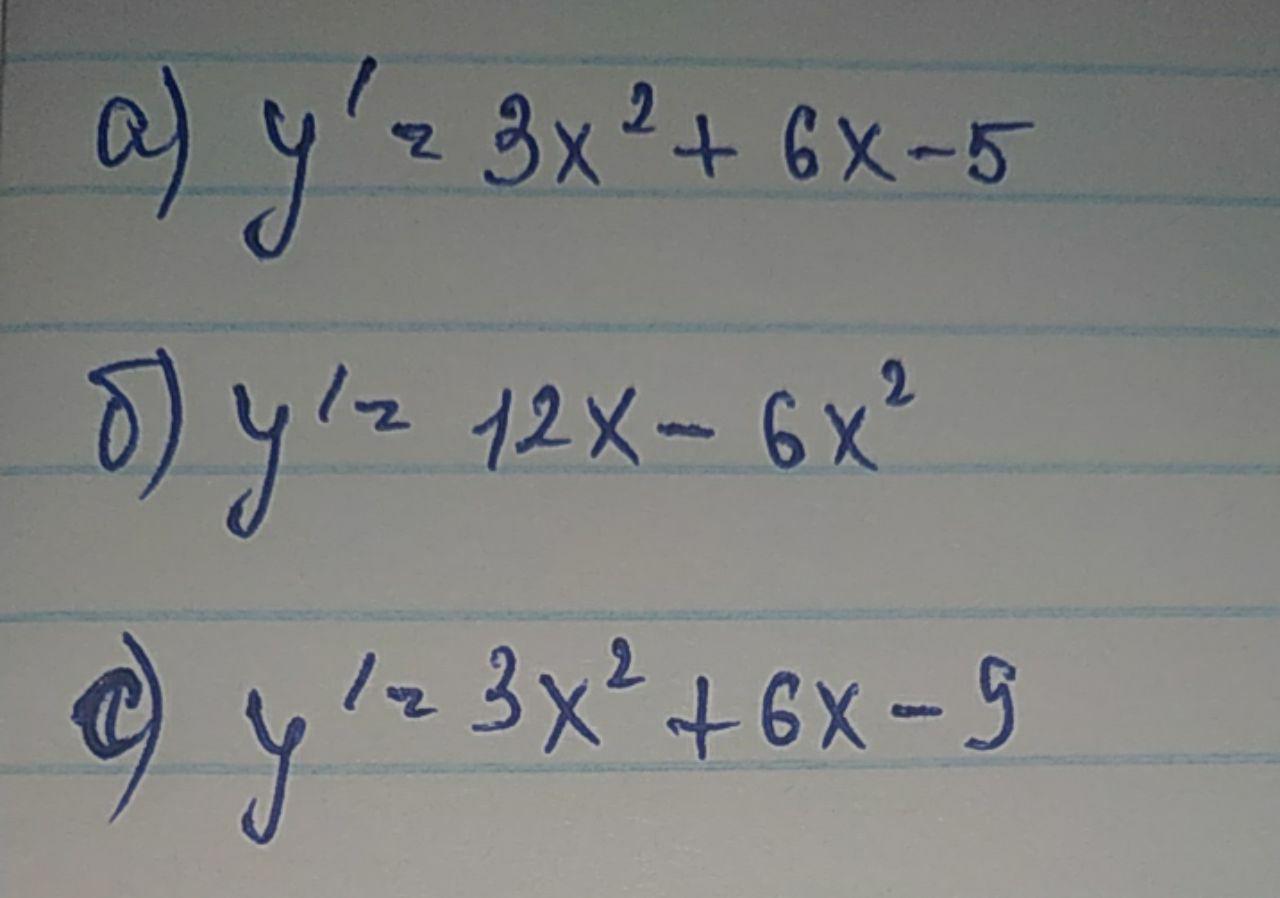 а) y' = 3x² + 6x - 5
б) y' = 12x - 6x²
с) y' = 3x² + 6x - 9